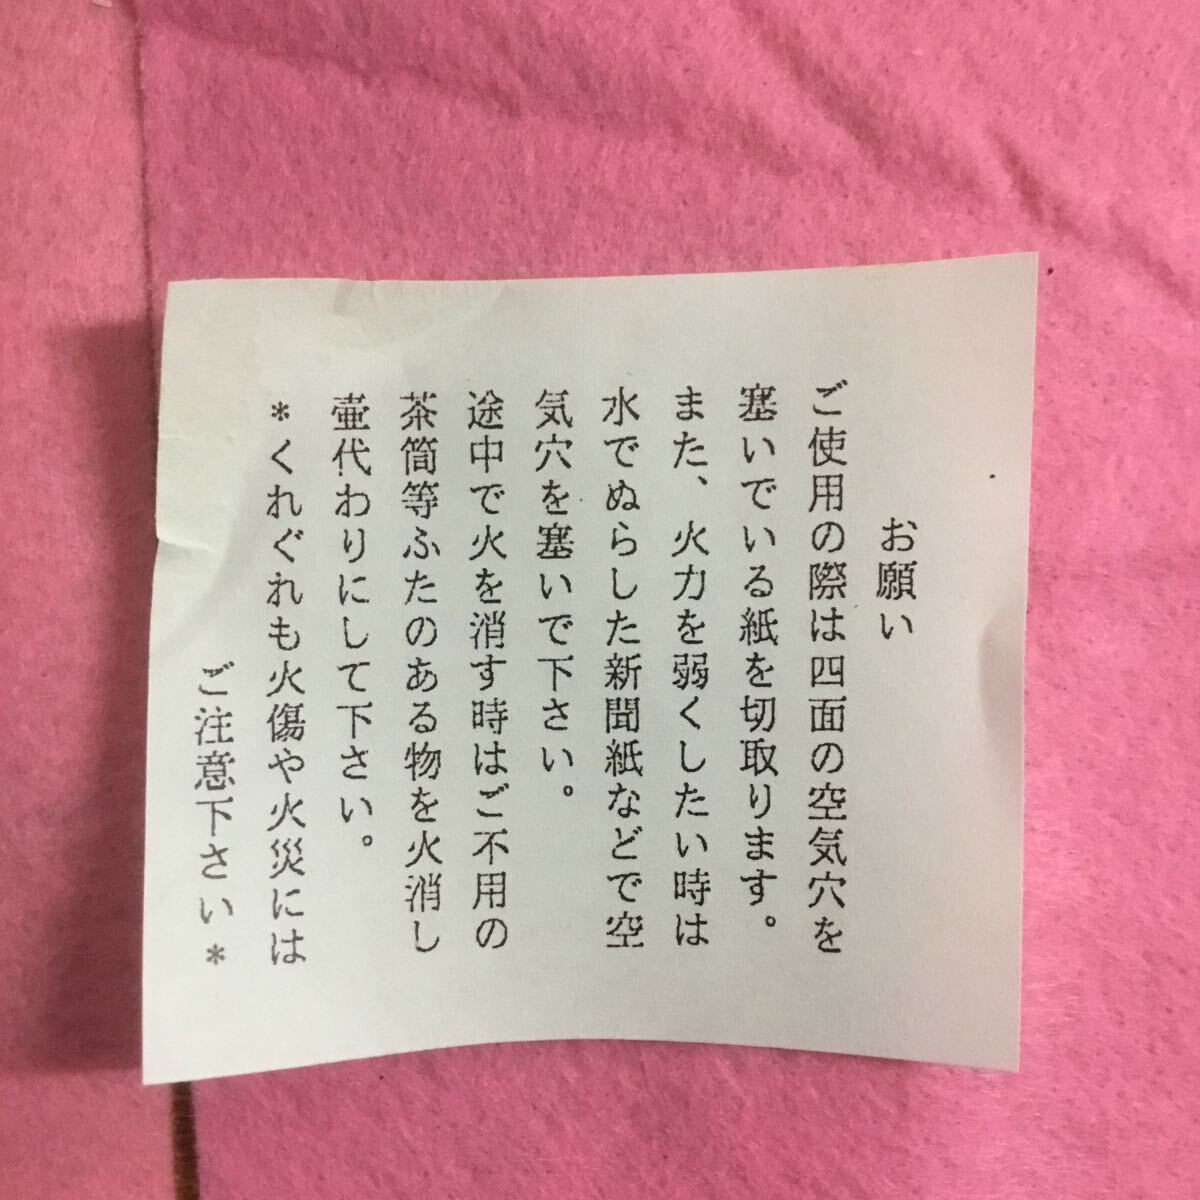 お願い
ご使用の際は四面の空気穴を
塞いでいる紙を切取ります。
また、火力を弱くしたい時は
水でぬらした新聞紙などで空
気穴を塞いで下さい。
途中で火を消す時はご不用の
茶筒等ふたのある物を火消し
壷代わりにして下さい。
＊くれぐれも火傷や火災には
ご注意下さい＊